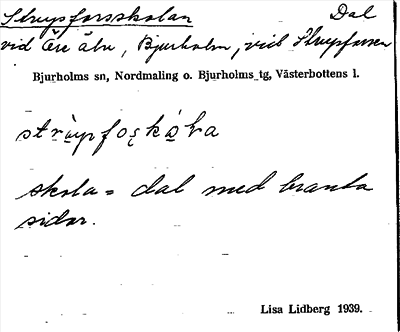 Strupforsskolan Dal
vid Öre älv, Bjurholm, vid Strupforsen
Bjurholms sn, Nordmaling o. Bjurholms tg, Västerbottens l.
skola = dal med branta
sidor.
Lisa Lidberg 1939.